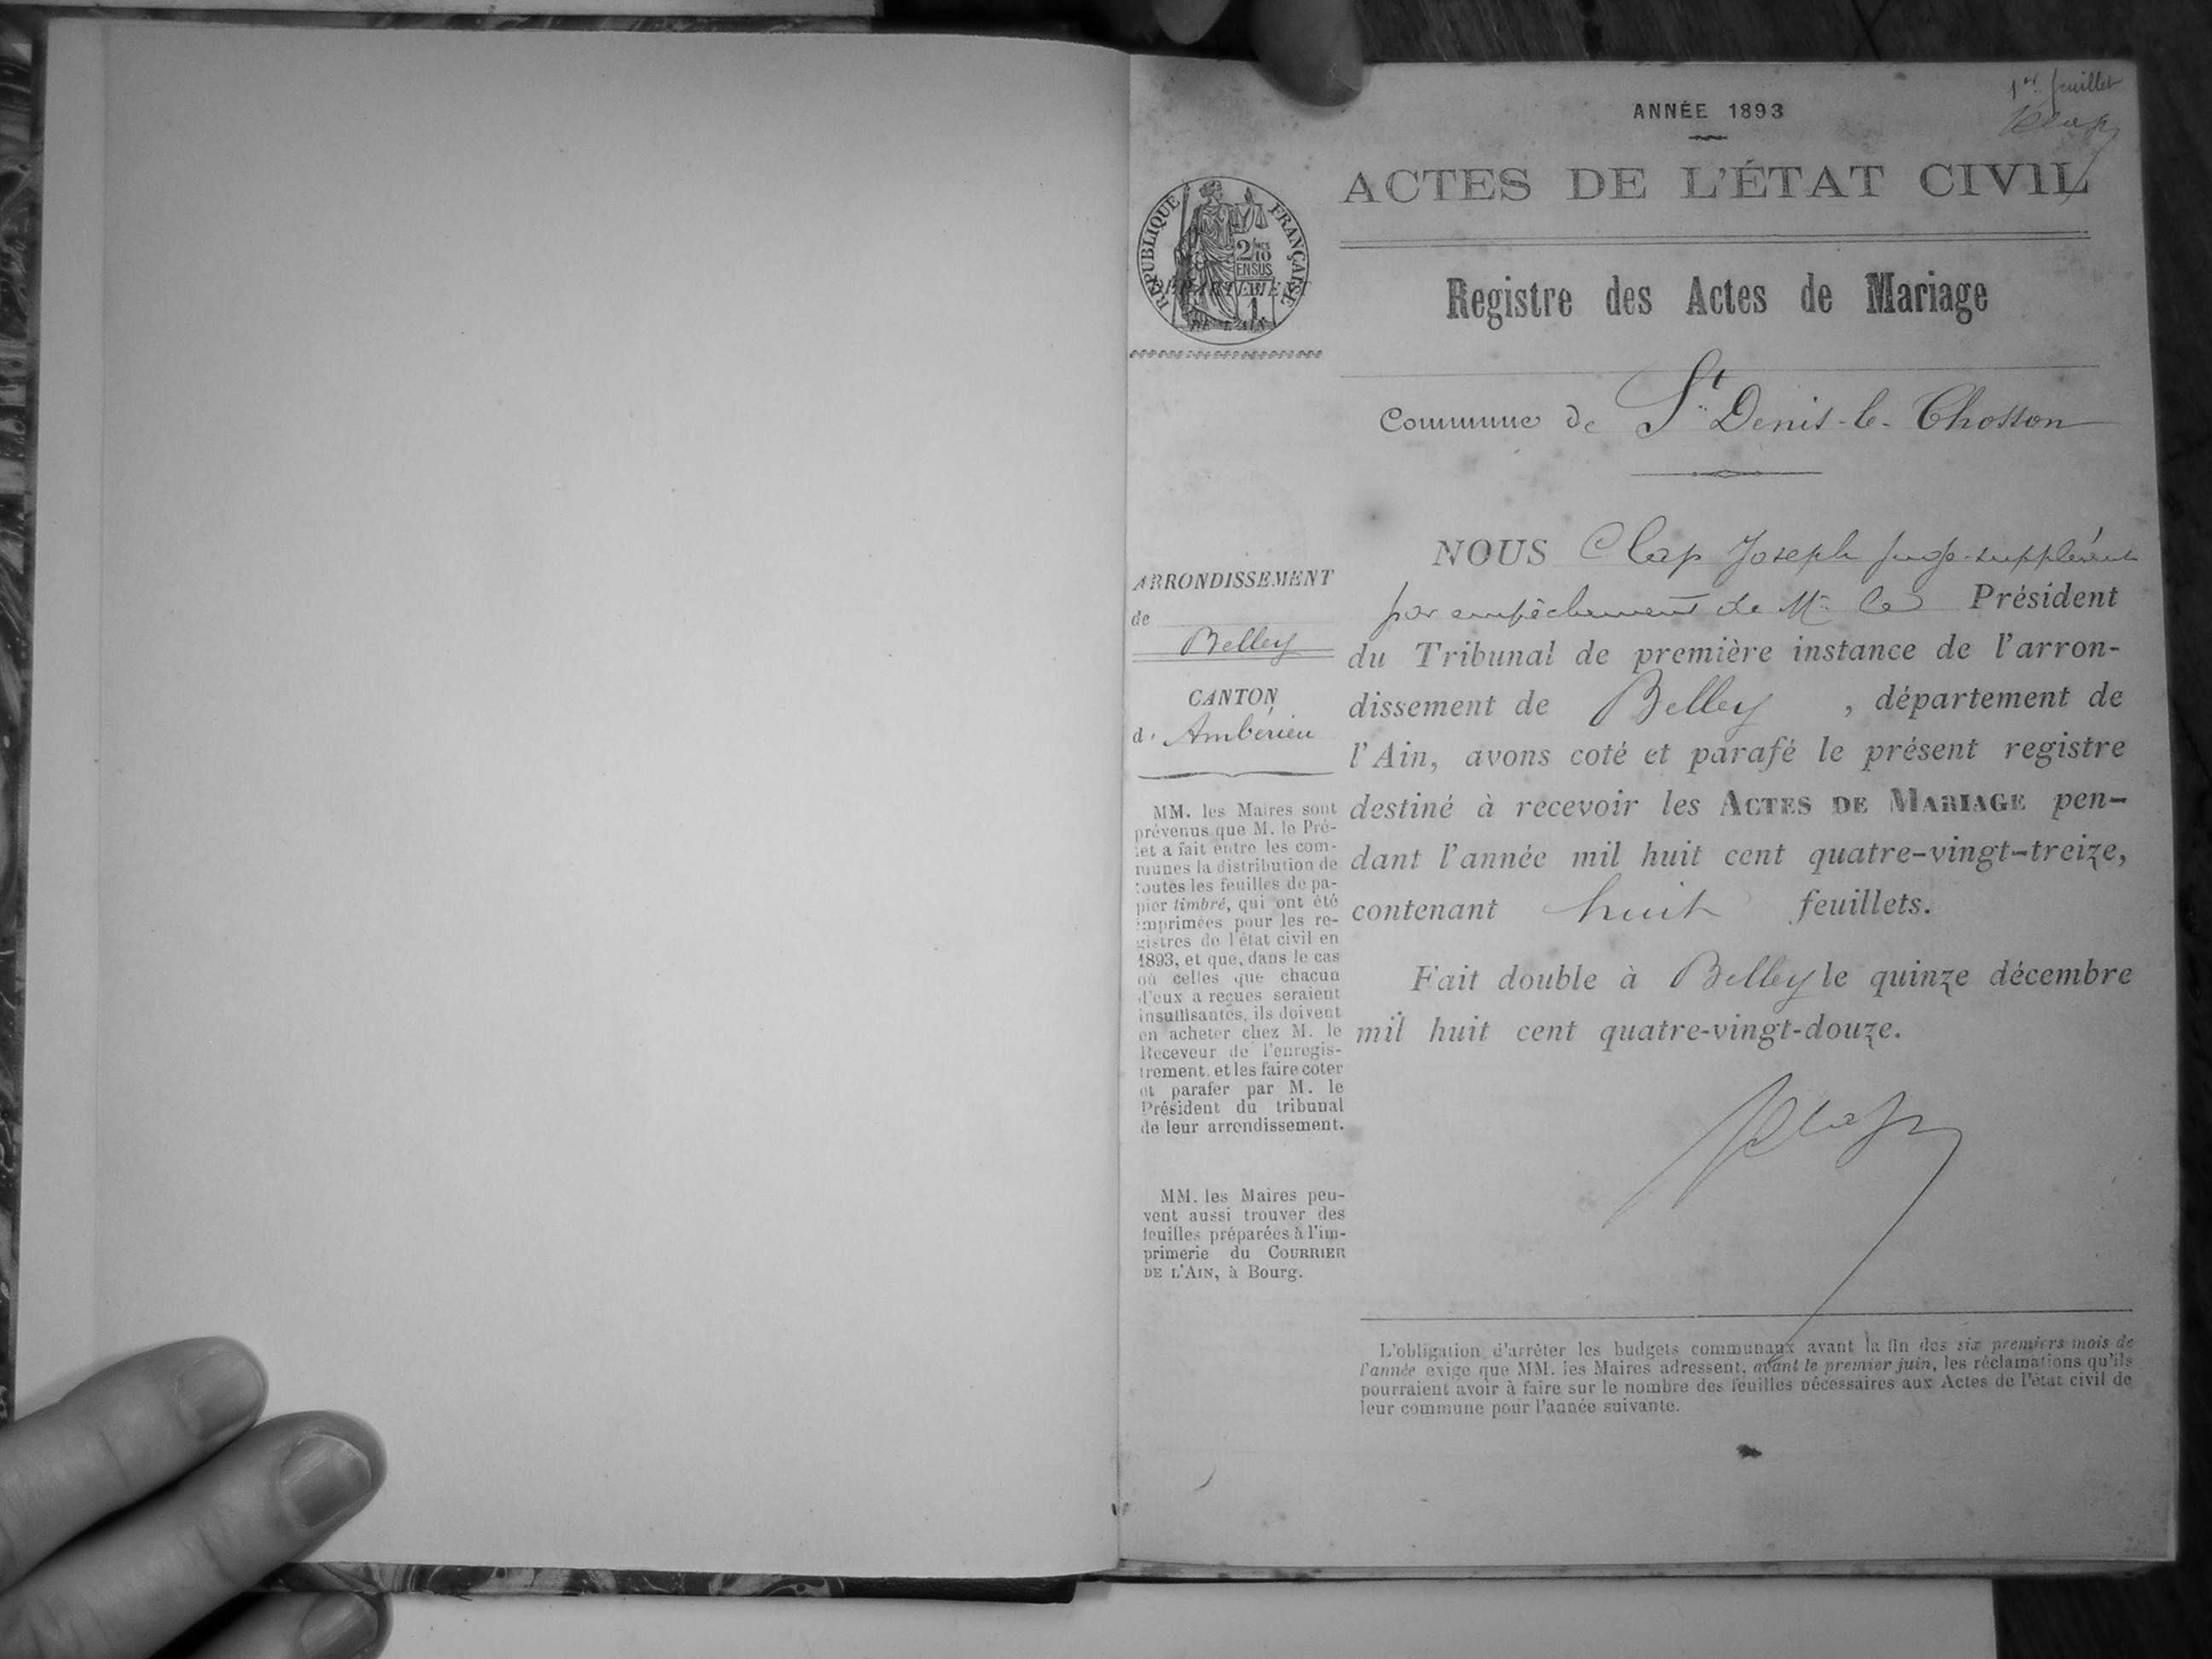 1er feuillet
Clap
ANNÉE 1893
ACTES DE L'ÉTAT CIVIL
RÉPUBLIQUE FRANÇAISE
2/10
EN SUS
DÉPARTEMENT
1
DE L'AIN
Registre des Actes de Mariage
Commune de St Denis-le-Chosson
ARRONDISSEMENT
de
Belley
CANTON
d'Ambérieu
MM. les Maires sont
prévenus que M. le Pré-
fet a fait entre les com-
munes la distribution de
toutes les feuilles de pa-
pier timbré, qui ont été
imprimées pour les re-
gistres de l'état civil en
1893, et que, dans le cas
où celles que chacun
d'eux a reçues seraient
insuffisantes, ils doivent
en acheter chez M. le
Receveur de l'enregis-
trement, et les faire coter
et parafer par M. le
Président du tribunal
de leur arrondissement.
MM. les Maires peu-
vent aussi trouver des
feuilles préparées à l'im-
primerie du COURRIER
DE L'AIN, à Bourg.
NOUS Clap Joseph juge-suppléant
par empêchement de Mr le Président
du Tribunal de première instance de l'arron-
dissement de Belley, département de
l'Ain, avons coté et parafé le présent registre
destiné à recevoir les ACTES DE MARIAGE pen-
dant l'année mil huit cent quatre-vingt-treize,
contenant huit feuillets.
Fait double à Belley le quinze décembre
mil huit cent quatre-vingt-douze.
Clap
L'obligation d'arrêter les budgets communaux avant la fin des six premiers mois de
l'année exige que MM. les Maires adressent, avant le premier juin, les réclamations qu'ils
pourraient avoir à faire sur le nombre des feuilles nécessaires aux Actes de l'état civil de
leur commune pour l'année suivante.